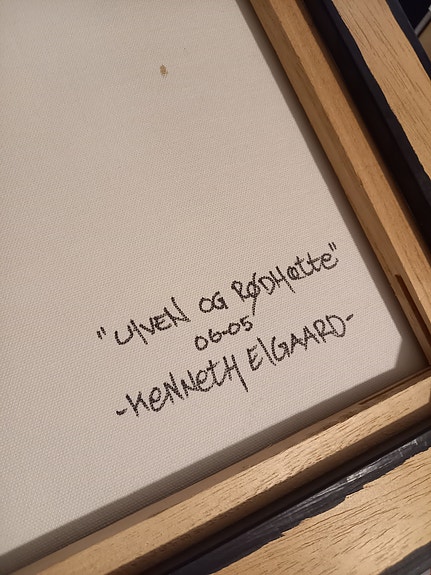 "UlVEN OG RØDHættE"
06-05
-KENNETH ElGAARD-